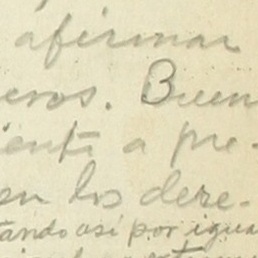 afirmar
eros. Buen
ienta a pre-
en los dere-
tando así por igua